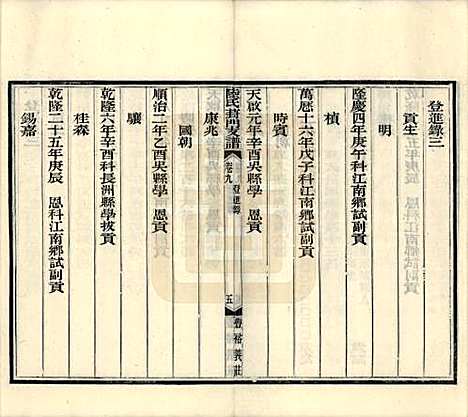 登進錄三
貢生
明
隆慶四年庚午科江南鄉試副貢
楨
萬曆十六年戊子科江南鄉試副貢
時賓
天啟元年辛酉吳縣學 恩貢
陸氏葑門支譜 卷九 登進錄 五 豐裕義莊
康兆
國朝
順治二年乙酉吳縣學 恩貢
驤
乾隆六年辛酉科長洲縣學拔貢
桂森
乾隆二十五年庚辰 恩科江南鄉試副貢
錫嘉